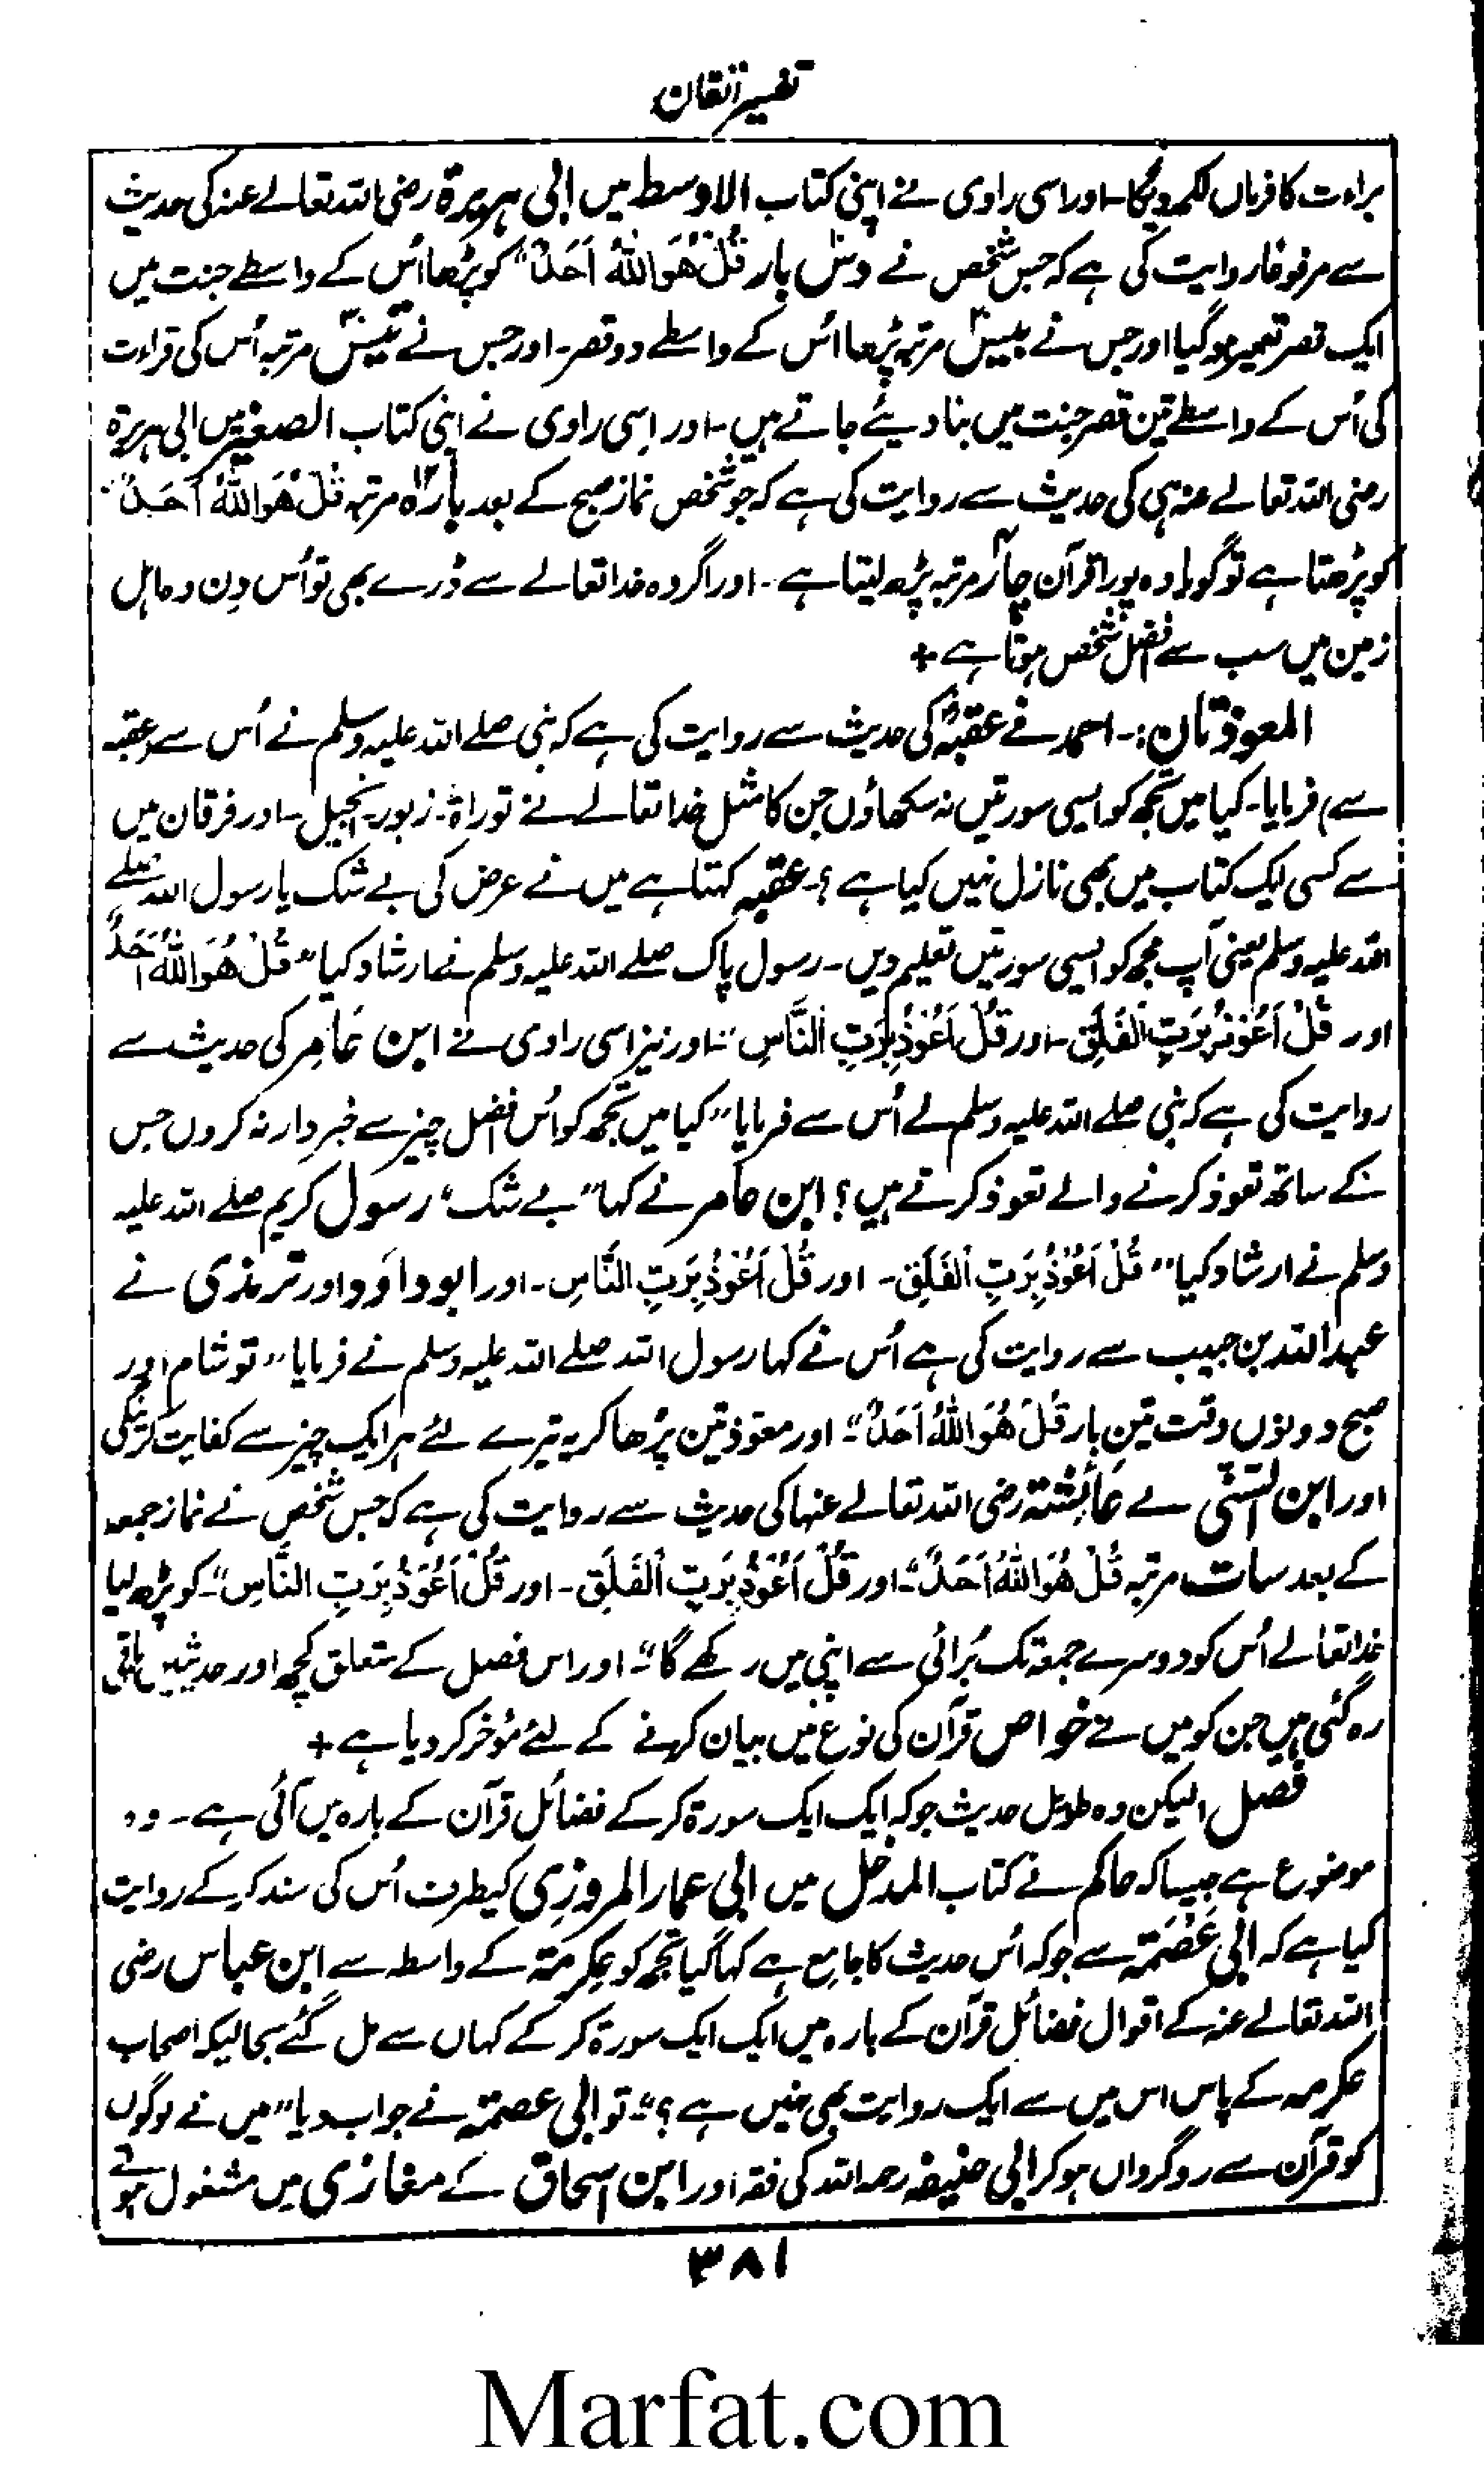 تفسیر اتقان
براءت کا فرماں لکھ دیگا۔ اور اسی راوی نے اپنی کتاب الاوسط میں ابی ہریرۃ رضی اللہ تعالے عنہ کی حدیث
سے مرفوعًا روایت کی ہے کہ جس شخص نے دس۱۰ بار قُلْ هُوَ اللّٰهُ اَحَدٌ" کو پڑھا اُس کے واسطے جنت میں
ایک قصر تعمیر ہو گیا اور جس نے بیس۲۰ مرتبہ پڑھا اُس کے واسطے دو قصر۔ اور جس نے تیس۳۰ مرتبہ اُس کی قراءت
کی اُس کے واسطے تین قصر جنت میں بنا دیئے جاتے ہیں۔ اور اِسی راوی نے اپنی کتاب الصغیر میں ابی ہریرۃ
رضی اللہ تعالے عنہ ہی کی حدیث سے روایت کی ہے کہ جو شخص نماز صبح کے بعد بارہ۱۲ مرتبہ قُلْ هُوَ اللّٰهُ اَحَدٌ"
کو پڑھتا ہے تو گویا وہ پورا قرآن چار۴ مرتبہ پڑھ لیتا ہے۔ اور اگر وہ خدا تعالے سے ڈرے بھی تو اُس دِن وہ اہل
زمین میں سب سے افضل شخص ہوتا ہے +
المعوذتان:۔ احمد نے عقبہؓ کی حدیث سے روایت کی ہے کہ نبی صلے اللہ علیہ وسلم نے اُس سے (عقبہ
سے) فرمایا۔ کیا میں تجھ کو ایسی سورتیں نہ سکھاؤں جن کا مثل خدا تعالے نے توراۃ۔ زبور۔ انجیل۔ اور فرقان میں
سے کسی ایک کتاب میں بھی نازل نہیں کیا ہے؟۔ عقبہ کہتا ہے میں نے عرض کی بے شک یا رسول اللہ صلے
اللہ علیہ وسلم یعنی آپ مجھ کو ایسی سورتیں تعلیم دیں۔ رسول پاک صلے اللہ علیہ وسلم نے ارشاد کیا "قُلْ هُوَ اللّٰهُ اَحَدٌ
اور قُلْ اَعُوْذُ بِرَبِّ الْفَلَقِ۔ اور قُلْ اَعُوْذُ بِرَبِّ النَّاسِ"۔ اور نیز اسی راوی نے ابن عَامِر کی حدیث سے
روایت کی ہے کہ نبی صلے اللہ علیہ وسلم نے اُس سے فرمایا "کیا میں تجھ کو اُس افضل چیز سے خبردار نہ کروں جس
کے ساتھ تعوذ کرنے والے تعوذ کرتے ہیں؟ ابن عامر نے کہا "بے شک" رسول کریم صلے اللہ علیہ
وسلم نے ارشاد کیا "قُلْ اَعُوْذُ بِرَبِّ الْفَلَقِ۔ اور قُلْ اَعُوْذُ بِرَبِّ النَّاسِ۔ اور ابوداوَد اور ترمذی نے
عبداللہ بن حبیب سے روایت کی ہے اُس نے کہا رسول اللہ صلے اللہ علیہ وسلم نے فرمایا "تو شام اور
صبح دونوں وقت تین بار قُلْ هُوَ اللّٰهُ اَحَدٌ"۔ اور معوذتین پڑھا کر یہ تیرے لئے ہر ایک چیز سے کفایت کرینگی
اور ابن السُنّی نے عَائِشَتہ رضی اللہ تعالے عنہا کی حدیث سے روایت کی ہے کہ جس شخص نے نماز جمعہ
کے بعد سات مرتبہ قُلْ هُوَ اللّٰهُ اَحَدٌ"۔ اور قُلْ اَعُوْذُ بِرَبِّ الْفَلَقِ۔ اور قُلْ اَعُوْذُ بِرَبِّ النَّاسِ"۔ کو پڑھ لیا
خدا تعالےٰ اُس کو دوسرے جمعہ تک بُرائی سے اپنی میں رکھے گا"۔ اور اس فصل کے متعلق کچھ اور حدیثیں باقی
رہ گئی ہیں جن کو میں نے خواص قرآن کی نوع میں بیان کرنے کے لئے مؤخر کر دیا ہے +
فصل، لیکن وہ طویل حدیث جو کہ ایک ایک سورۃ کر کے فضائل قرآن کے بارہ میں آئی ہے۔ وہ
موضوع ہے جیسا کہ حاکم نے کتاب المدخل میں ابی عمار المروزِی کیطرف اُس کی سند کر کے روایت
کیا ہے کہ ابی عَصْمَتہ سے جو کہ اُس حدیث کا جامِع ہے کہا گیا تجھ کو عِکرِمَتہ کے واسطہ سے ابن عباس رضی
اللہ تعالے عنہ کے اقوال فضائل قرآن کے بارہ میں ایک ایک سورۃ کر کے کہاں سے مل گئے بحالیکہ اصحاب
عکرمہ کے پاس اس میں سے ایک روایت بھی نہیں ہے؟"۔ تو ابی عصمتہ نے جواب دیا "میں نے لوگوں
کو قرآن سے روگرداں ہو کر ابی حنیفہ رحمہ اللہ کی فقہ اور ابن اسحاق کے مغازی میں مشغول ہوتے
۳۸۱
Marfat.com